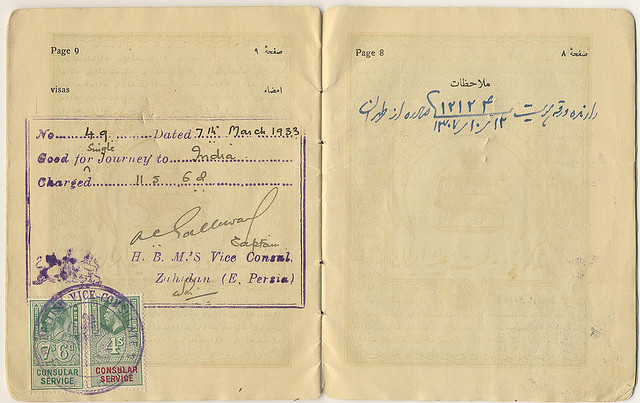 Page 9
صفحهٔ ۹
visas
امضاء
No. 49 Dated 7th March 1933
Single
Good for Journey to India
Charged 11 s 6 d
Captain
H. B. M.'S Vice Consul
Zahidan (E. Persia)
7s6d
CONSULAR
SERVICE
4s
CONSULAR
SERVICE
Page 8
صفحهٔ ۸
ملاحظات
دارنده ورقه هویت ۱۲۱۲۴ صادره از طهران